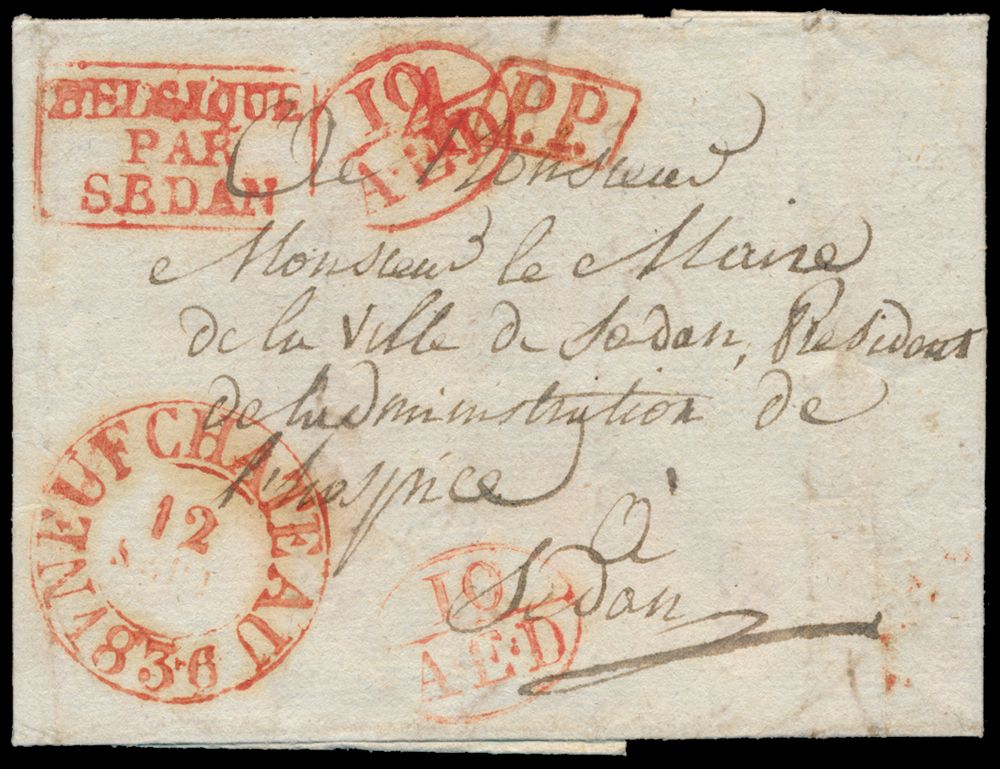 BELGIQUE
PAR
SEDAN
10
A.E.D
P.P.
A Monsieur
Monsieur le Maire
de la Ville de Sedan, President
de l'administration de
l'hospice
a
Sedan
NEUFCHATEAU
12
1836
10
A.E.D